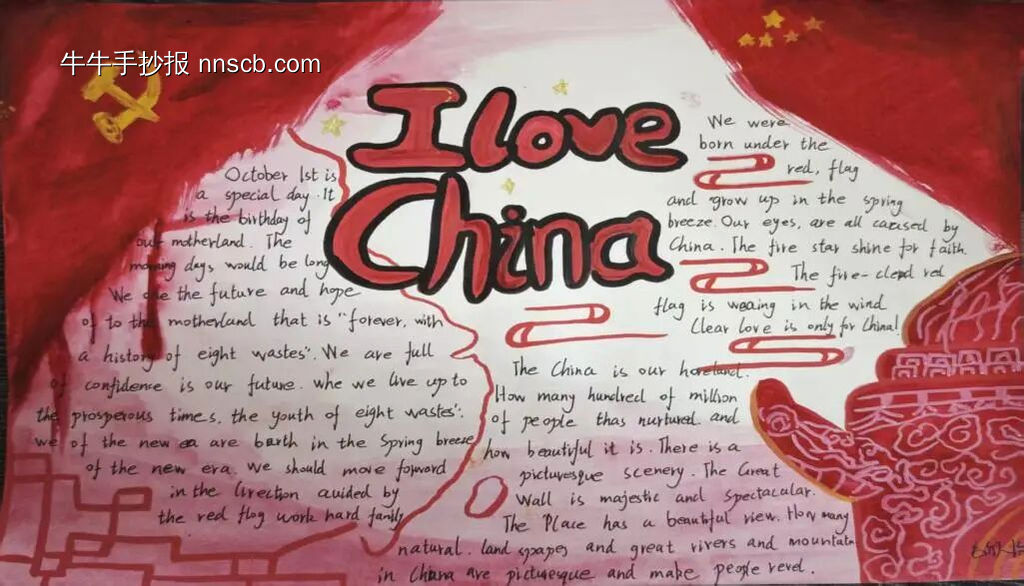 牛牛手抄报 nnscb.com
I love
China
October 1st is
a special day. It
is the birthday of
our motherland. The
days would be long
We are the future and hope
of to the motherland that is "forever, with
a history of eight wastes". We are full
of confidence is our future. whe we live up to
the prosperous times, the youth of eight wastes".
we of the new ea are barth in the Spring breeze
of the new era. We should move forward
in the Girection auided by
the red flag work hard
We were
born under the
red, flag
and grow up in the spring
breeze. Our eyes, are all caused by
China. The five star shine for faith.
The five-
red
flag is weaing in the wind
Clear love is only for China!
The China is our
How many hundred of million
of people thas nurtured and
how beautiful it is. There is a
picturesque scenery. The Great
Wall is majestic and spectacular.
The Place has a beautiful view. How many
natural. land spapes and great rivers and mountata
in China are picturesque and make people revel.